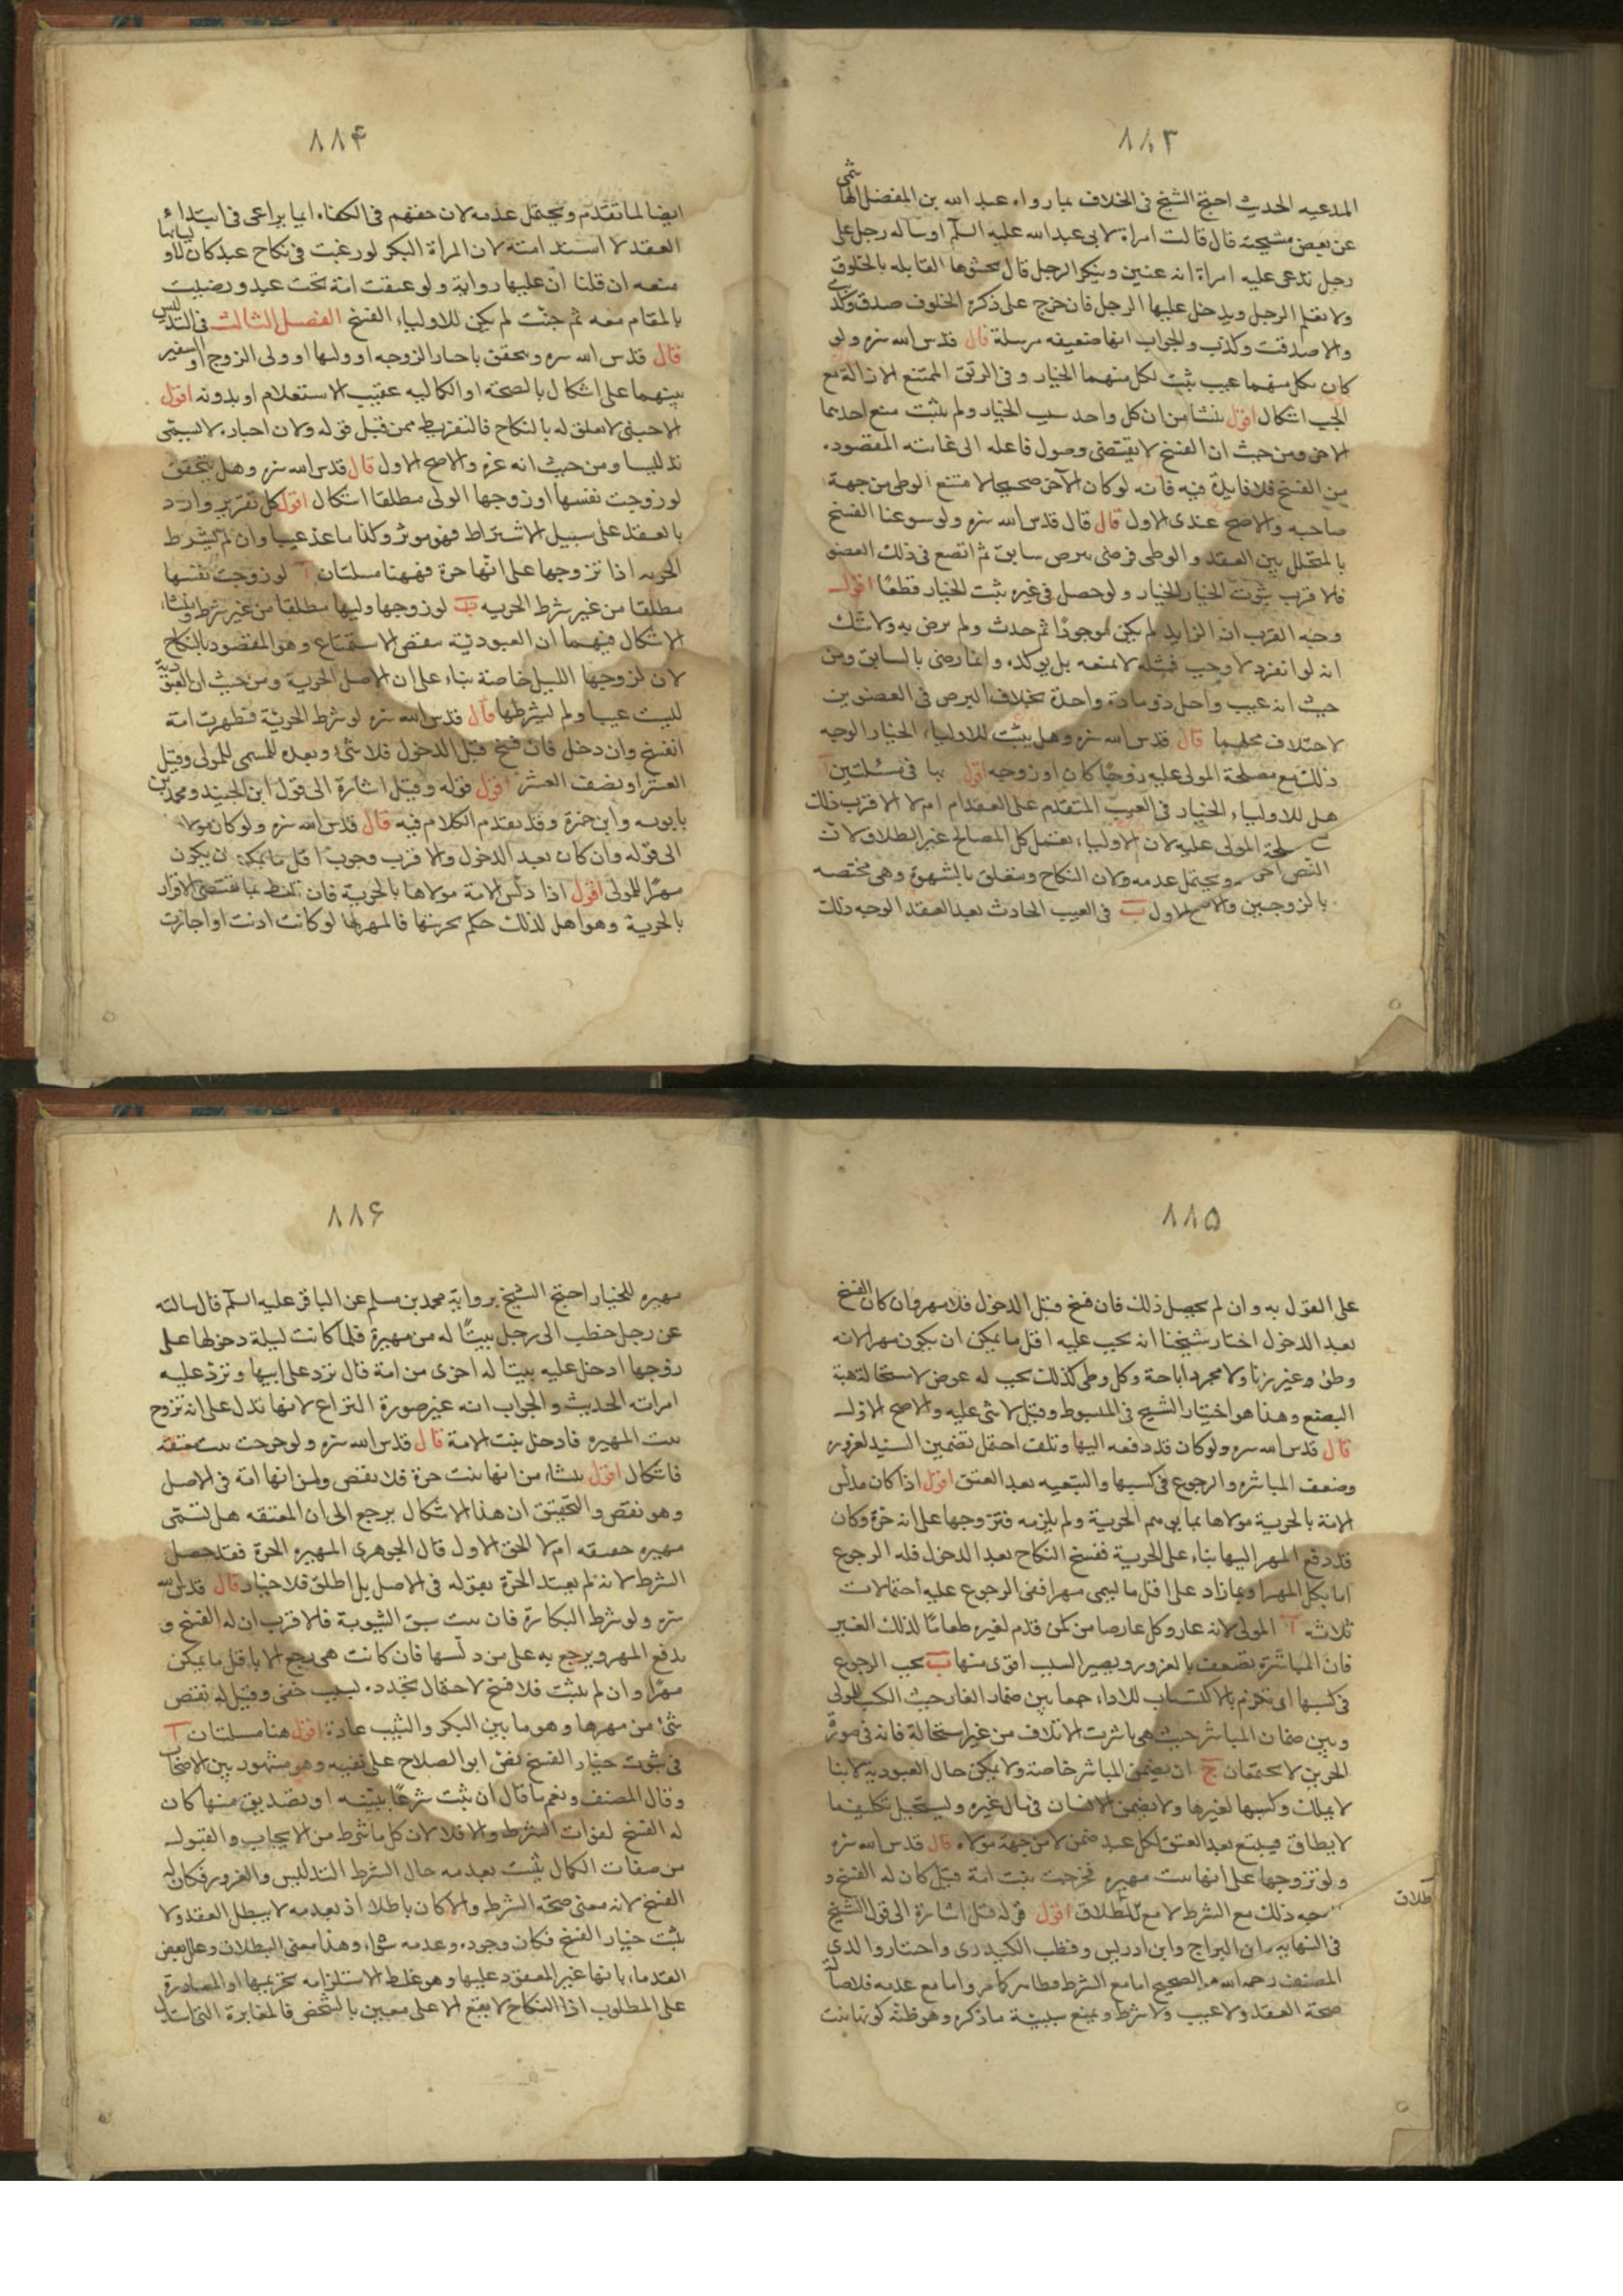 ٨٨٣
المدعيه الحديث احتج الشيخ فى الخلاف بما رواه عبد الله بن المفضل الهاشمى
عن بعض مشيخته قال قالت امراة لابى عبد الله عليه السلم او ساله رجل على
رجل تدعى عليه امراة انه عنين وينكر الرجل قال تحشوها القابله بالخلوق
ولا يعلم الرجل ويدخل عليها الرجل فان خرج على ذكره الخلوف صدق وكذبت
والا صدقت وكذب والجواب انها ضعيفه مرسلة قال قدس الله سره ولو
كان بكل منهما عيب يثبت لكل منهما الخيار وفى الرتق الممتنع الازالة مع
الجب اشكال اقول ينشا من ان كل واحد سبب الخيار ولم يثبت منع احديهما
الاخر ومن حيث ان الفسخ لا يقتضى وصول فاعله الى غايته المقصوده
من الفسخ فلا فايدة فيه فانه لو كان الآخر صحيحا لامتنع الوطى من جهة
صاحبه والاصح عندى الاول قال قال قدس الله سره ولو سوغنا الفسخ
بالمتخلل بين العقد والوطى فرضى ببرص سابق ثم اتسع فى ذلك العضو
فالاقرب ثبوت الخيار ولو حصل فى غيره ثبت الخيار قطعا اقول
وجه القرب ان الزايد لم يكن موجودا ثم حدث ولم يرض به ولا شك
انه لو انفرد لاوجب فمثله لا يمنعه بل يوكده وانما رضى بالسابق ومن
حيث انه عيب واحد ذو مادة واحدة بخلاف البرص فى العضوين
لاختلاف محلهما قال قدس الله سره وهل يثبت للاولياء الخيار الوجه
ذلك مع مصلحة المولى عليه زوجا كان او زوجه اقول هنا فى مسئلتين آ
هل للاولياء الخيار فى العيب المتقدم على العقد ام لا الاقرب ذلك
لمصلحة المولى عليه لان الاولياء يفعل كل المصالح غير الطلاق لان
النص اخر ويحتمل عدمه ولان النكاح ومتعلق بالشهوة وهى مختصه
بالزوجين والاصح الاول ب فى العيب الحادث بعد العقد الوجه ذلك
٨٨۴
ايضا لما تقدم ويحتمل عدمه لان حقهم فى الكفاءه انما يراعى فى ابتداء
العقد لا استدامته لان المراة البكر لو رغبت فى نكاح عبد كان لاوليائها
منعه ان قلنا ان عليها رواية ولو عتقت امة تحت عبد ورضيت
بالمقام معه ثم جنّت لم يكن للاولياء الفسخ الفصل الثالث فى التدليس
قال قدس الله سره ويتحقق باخبار الزوجه او وليها او ولى الزوج او السفير
بينهما على اشكال بالصحته او الكماليه عقيب الاستعلام او بدونه اقول
الاجنبى لا تعلق له بالنكاح فالتفريط ممن قبل قوله ولان اخباره لا يسمى
تدليسا ومن حيث انه غره والاصح الاول قال قدس الله سره وهل يتحقق
لو زوجت نفسها او زوجها الولى مطلقا اشكال اقول كل تغرير وارد
بالعقد على سبيل الاشتراط فهو موثر وكذا ما عد عيبا وان لم يشرط
الحريه اذا تزوجها على انها حرة فههنا مسلتان آ لو زوجت نفسها
مطلقا من غير شرط الحريه ب لو زوجها وليها مطلقا من غير شرط ومنشاء
الاشكال فيهما ان العبودية تنقص الاستمتاع وهو المقصود بالنكاح
لان لزوجها الليل خاصة بناء على ان الاصل الحرية ومن حيث ان العبوديّة
ليست عيبا ولم يشرطها قال قدس الله سره لو شرط الحرّية فظهرت امة
انفسخ وان دخل فان فسخ قبل الدخول فلا شئ وبعده المسمى للمولى وقيل
العشر او نصف العشر اقول قوله وقيل اشارة الى قول ابن الجنيد ومحمد بن
بابويه وابن حمزة وقد تقدم الكلام فيه قال قدس الله سره ولو كان مولاه
الى قوله وان كان بعد الدخول والاقرب وجوب اقل ما يمكن ان يكون
مهرا للمولى اقول اذا دلّس الامة مولاها بالحريّة فان تلفظ بما يقتضى الاقرار
بالحرية وهو اهل لذلك حكم بحريتها فالمهر لها لو كانت اذنت او اجازت
٨٨۵
على القول به وان لم يحصل ذلك فان فسخ قبل الدخول فلا مهر وان كان الفسخ
بعد الدخول اختار شيخنا انه يجب عليه اقل ما يمكن ان يكون مهرا لانه
وطئ وغير زنا ولا مجرد اباحة وكل وطى كذلك يجب له عوض لاستحالة هبة
البضع وهذا هو اختيار الشيخ فى المبسوط وقيل لا شى عليه والاصح الاول
قال قدس الله سره ولو كان قد دفعه اليها وتلف احتمل تضمين السيد لغروره
وضعف المباشره والرجوع فى كسبها والتبعيه بعد العتق اقول اذا كان مدلّس
الامة بالحرية مولاها بما يوهم الحرية ولم يلزمه فتزوجها على انه حرة وكان
قد دفع المهر اليها بناء على الحرية ففسخ النكاح بعد الدخول فله الرجوع
اما بكل المهر او بما زاد على اقل ما يسمى مهرا ففى الرجوع عليه احتمالات
ثلاثة آ المولى لانه غار وكل غار ضامن كمن قدم لغيره طعاما لذلك الغير
فان المباشرة تضعف بالغرور ويصير السبب اقوى منها ب يجب الرجوع
فى كسبها اى يحرم بالاكتساب للاداء جمعا بين ضمان الغار حيث الكسب للمولى
وبين ضمان المباشر حيث هى باشرت الاتلاف من غير استحالة فانه فى صورة
الحرين لا يجتمعان ج ان يضمن المباشر خاصة ولا يمكن حال العبودية لانها
لا يملك وكسبها لغيرها ولا يضمن الانسان فى مال غيره وليستحيل تكليف ما
لا يطاق فيتبع بعد العتق لكل عبد ضمن لا من جهة مولاه قال قدس الله سره
ولو تزوجها على انها بنت مهيره فخرجت بنت امة قيل كان له الفسخ و
الوجه ذلك مع الشرط لا مع الاطلاق اقول قوله قيل اشارة الى قول الشيخ
طلاق
فى النهايه وابن البراج وابن ادريس وقطب الكيدرى واختار والدى
المصنف رحمه الله هو الصحيح اما مع الشرط فظاهر كما مر واما مع عدمه فلاصالة
صحة العقد ولا عيب ولا شرط ويمنع سببية ما ذكره وهو ظنّه كونها بنت
٨٨۶
مهيره للخيار احتج الشيخ بروايه محمد بن مسلم عن الباقر عليه السلم قال سالته
عن رجل خطب الى رجل بنتا له من مهيرة فلما كانت ليلة دخولها على
زوجها ادخل عليه بنتا له اخرى من امة قال ترد على ابيها وترد عليه
امراته الحديث والجواب انه غير صورة النزاع لانها تدل على انه تزوج
بنت المهيره فادخل بنت الامة قال قدس الله سره ولو خرجت بنت معتقه
فاشكال اقول ينشاء من انها بنت حرة فلا نقص ومن انها امة فى الاصل
وهو نقص والتحقيق ان هذا الاشكال يرجع الى ان المعتقه هل تسمّى
مهيره حقيقه ام لا الحق الاول قال الجوهرى المهيره الحرة فقد حصل
الشرط لانه لم يقيد الحرّة بقوله فى الاصل بل اطلق فلا خيار قال قدس الله
سره ولو شرط البكارة فان بنت سبق الثيوبة فالاقرب ان له الفسخ و
يدفع المهر ويرجع به على من دلّسها فان كانت هى رجع الا باقل ما يمكن
مهرًا وان لم يثبت فلا فسخ لاحتمال تجدده لسبب خفى وقيل له نقص
شئ من مهرها وهو ما بين البكر والثيب عادة اقول هنا مسلتان آ
فى ثبوت خيار الفسخ نفى ابو الصلاح على نفيه وهو مشهور بين الاصحاب
وقال المصنف ونعم ما قال ان ثبت شرعًا ببيّنه او تصديق منها كان
له الفسخ لفوات الشرط والا فلا لان كل ما شرط من الايجاب والقبول
من صفات الكمال يثبت بعدمه حال الشرط التدليس والغرور فكان له
الفسخ لانه معنى صحة الشرط والا كان باطلا اذ بعدمه لا يبطل العقد ولا
يثبت خيار الفسخ فكان وجوده وعدمه سواء وهذا معنى البطلان وعلل بعض
القدماء بانها غير المعقود عليها وهو غلط لاستلزامه تحريمها او المصادرة
على المطلوب اذا النكاح لا يقع الا على معيين بالشخص فالمغايرة التى